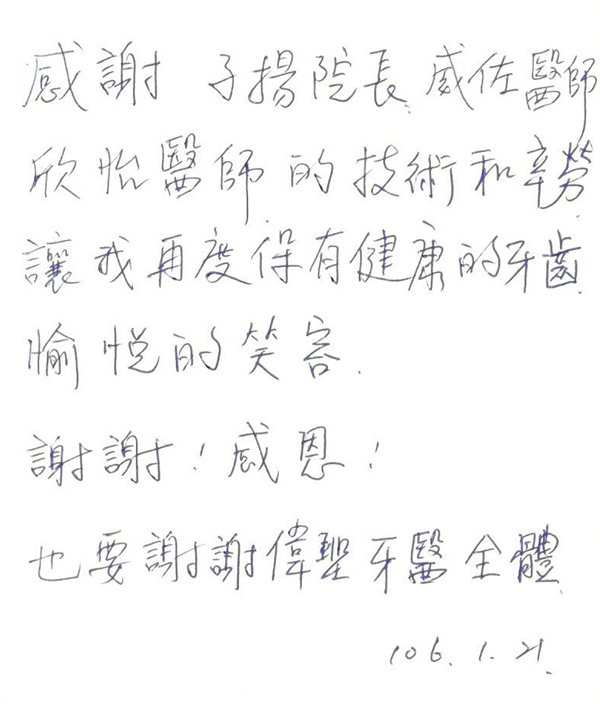 感謝 子揚院長 威佐醫師
欣怡醫師 的技術和辛勞
讓我再度保有健康的牙齒
愉悅的笑容.
謝謝！感恩！
也要謝謝偉聖牙醫全體.
106.1.21.